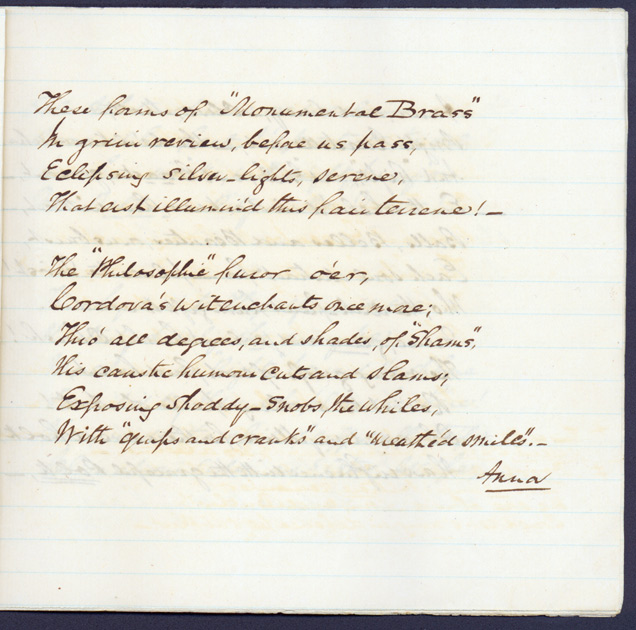 These forms of "Monumental Brass"
In grim review, before us pass,
Eclipsing silver-lights, serene,
That erst illumin'd this fair terrene! -
The "Philosophic" furor o'er,
Cordova's wit enchants once more;
Thro' all degrees, and shades, of "Shams",
His caustic humour cuts and slams;
Exposing Shoddy-Snobs, the whiles,
With "quips and cranks" and "wreathed smiles". -
Anna